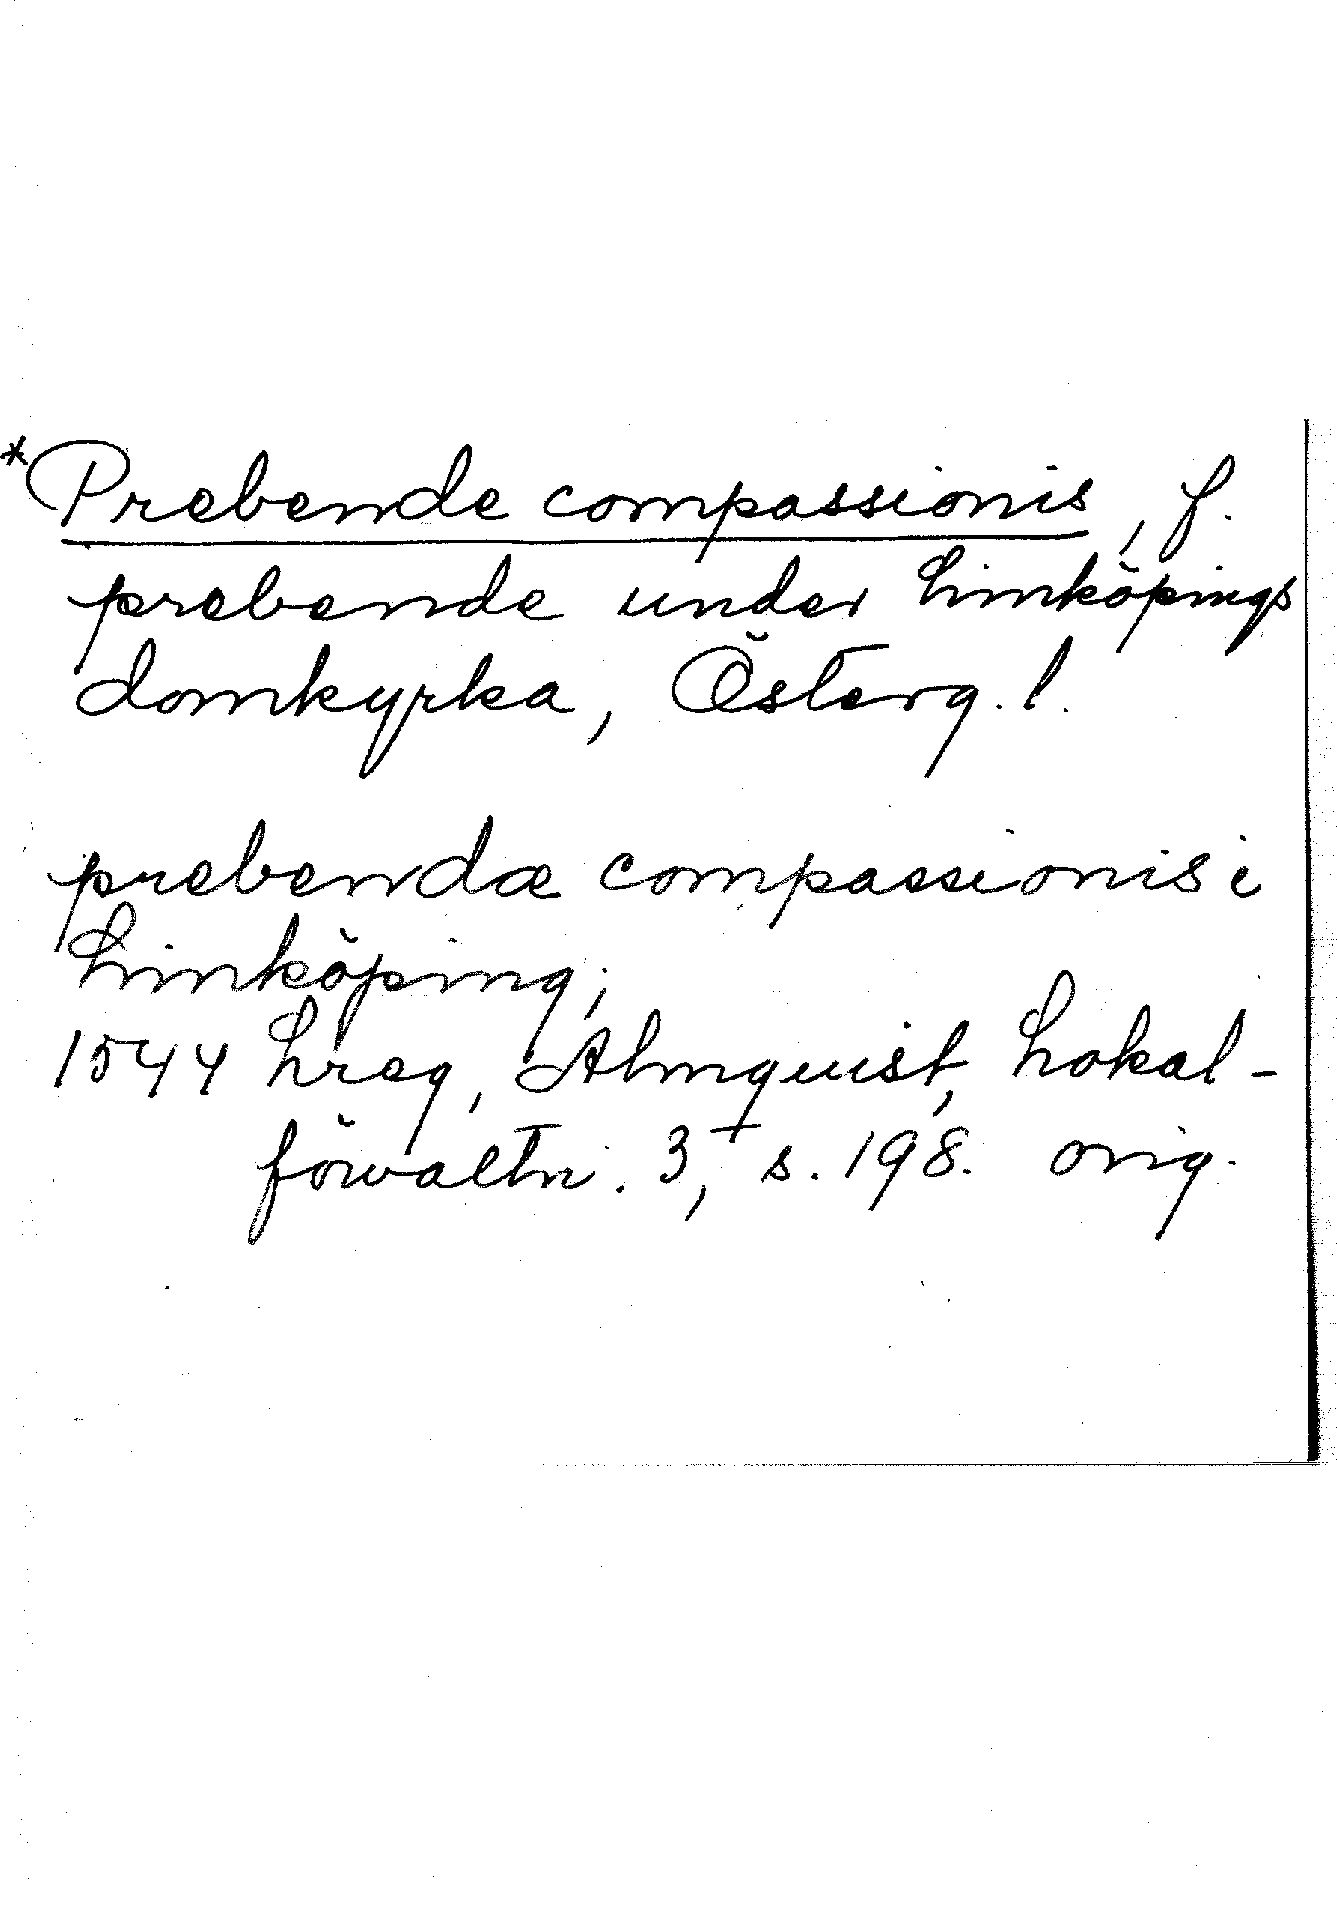 *Prebende compassionis, f.
prebende under Linköpings
domkyrka, Österg. l.
prebendæ compassionis i
Linköping;
1544 Lreg, Almquist, Lokal-
förvaltn. 3, s. 198. orig.